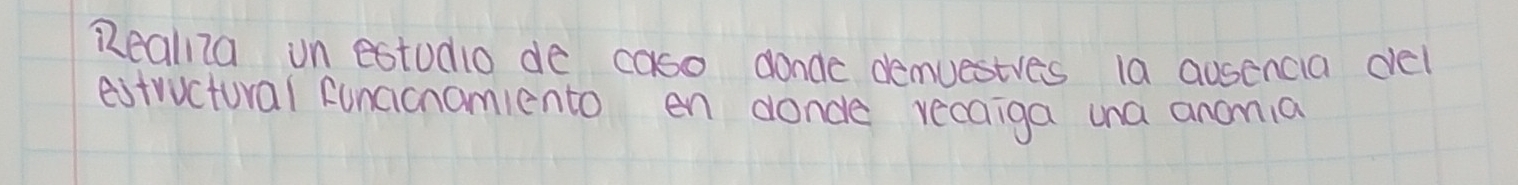 Realiza un estudio de caso donde demuestres la ausencia del
estructural funacnamiento en donde recaiga una anomia